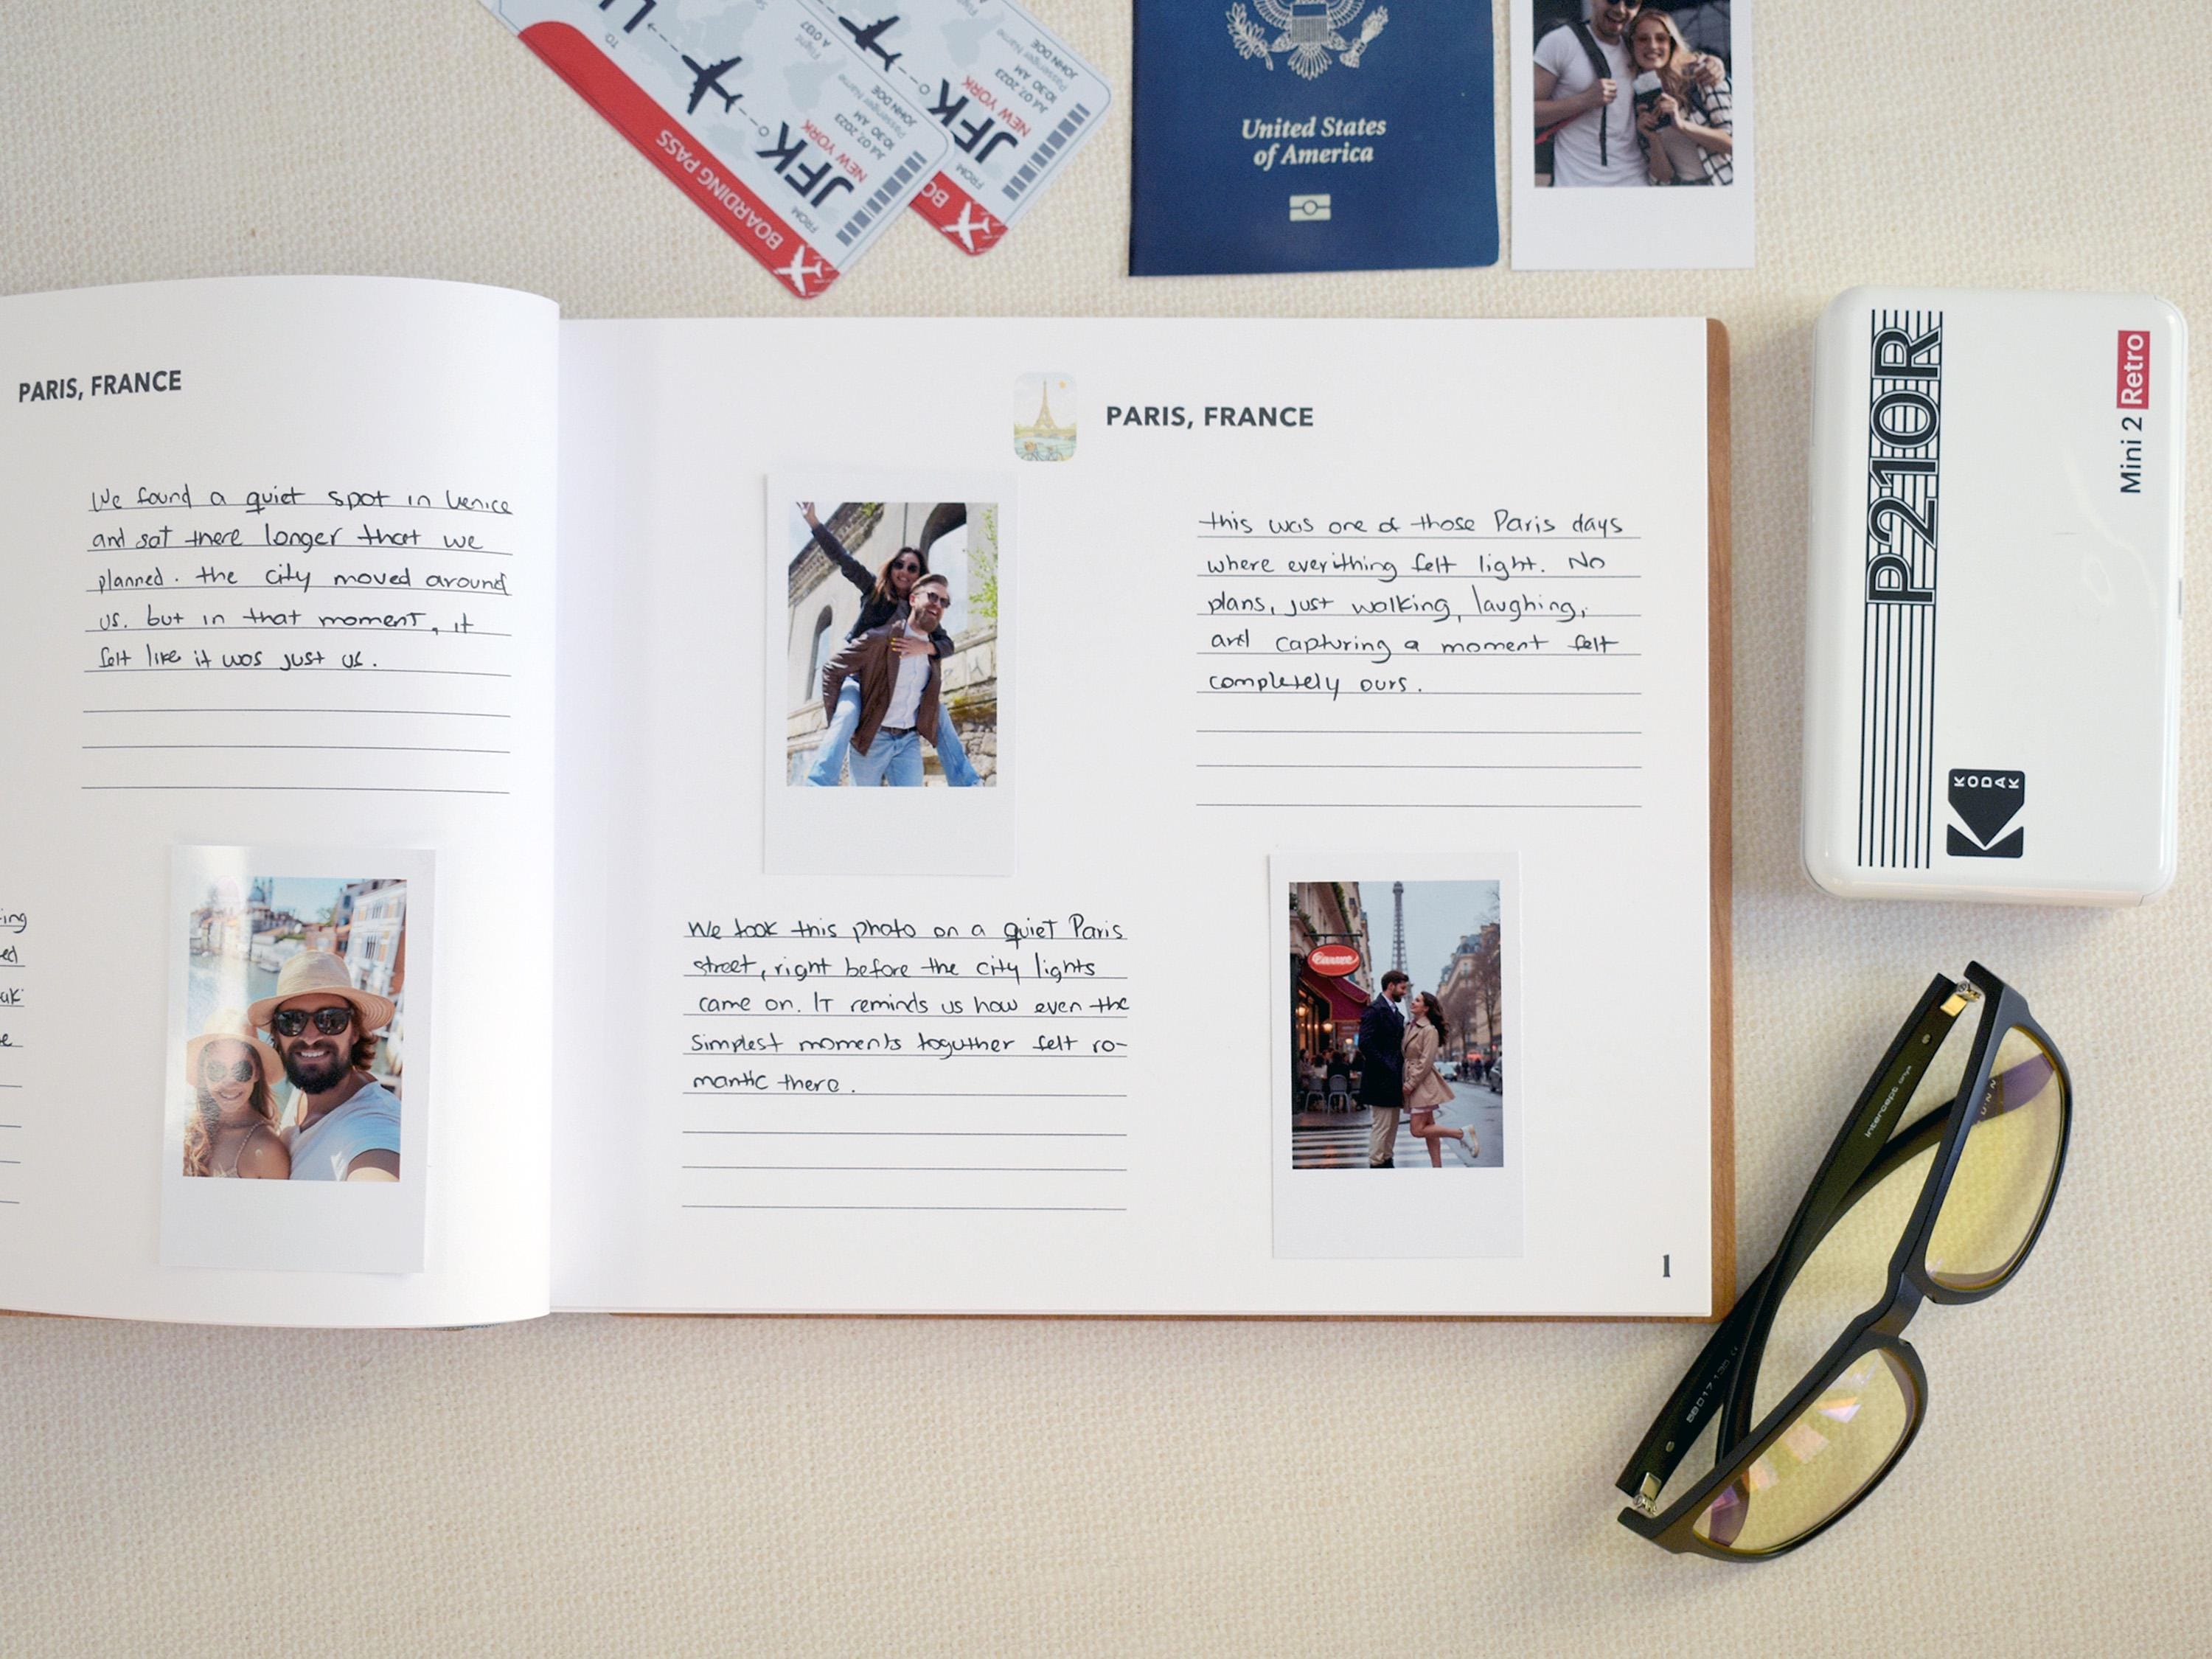 BOARDING PASS
TO
FROM
JFK
NEW YORK
Jul 07, 2023
10:30 AM
Passenger Name
JOHN DOE
Flight
A 0137
FROM
JFK
NEW YORK
Jul 07, 2023
10:30 AM
Passenger Name
JOHN DOE
United States
of America
PARIS, FRANCE
We found a quiet spot in Venice
and sat there longer that we
planned. the city moved around
us. but in that moment, it
felt like it was just us.
ing
ed
PARIS, FRANCE
this was one of those Paris days
where everithing felt light. No
plans, just walking, laughing,
and capturing a moment felt
completely ours.
We took this photo on a quiet Paris
street, right before the city lights
came on. IT reminds us how even the
simplest moments toguther felt ro-
mantic there.
1
P210R
Mini 2 Retro
KODAK
intercept onyx